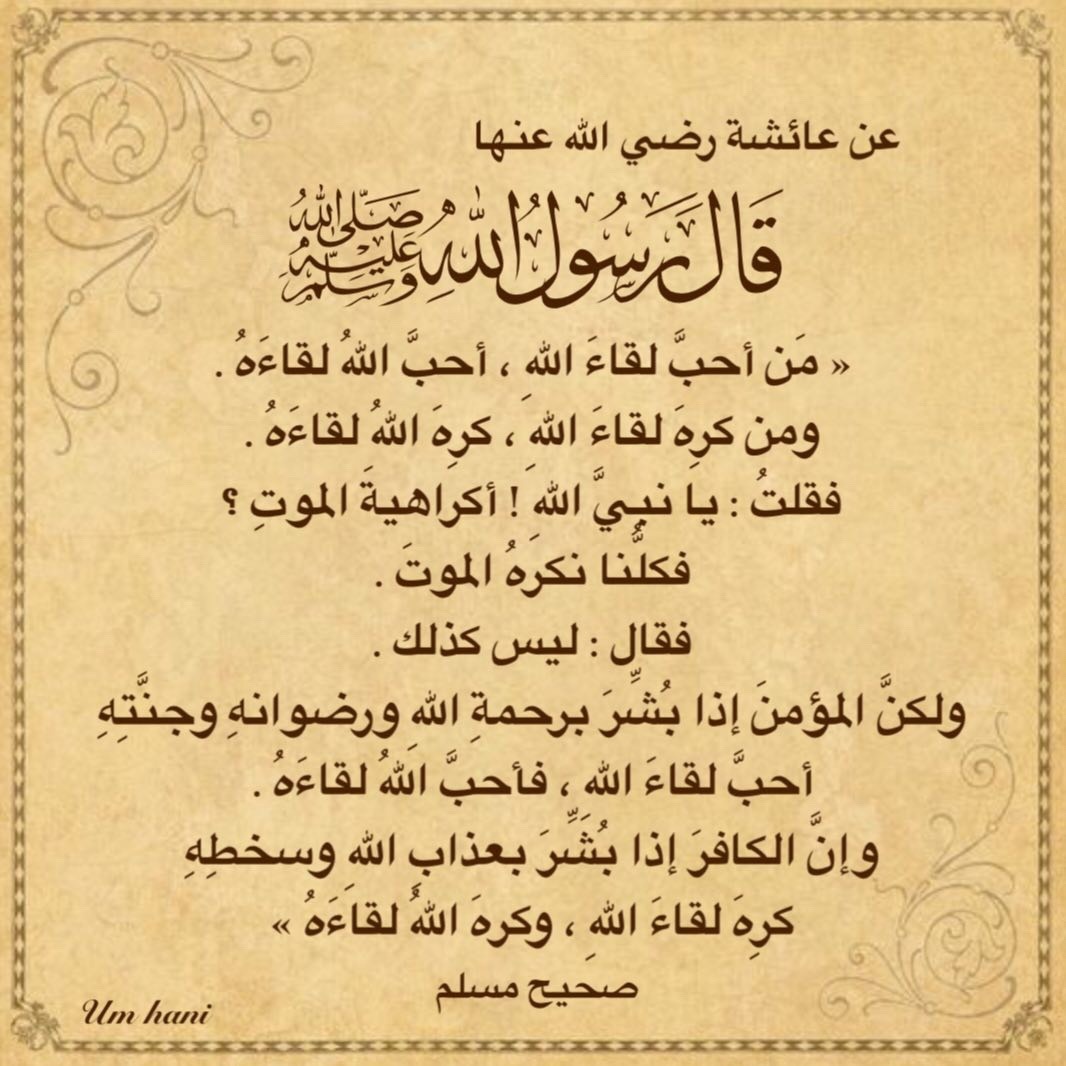 عن عائشة رضي الله عنها
قَالَ رَسُولُ اللهِ صَلَّى اللهُ عَلَيْهِ وَسَلَّمَ
« مَن أحبَّ لقاءَ اللهِ ، أحبَّ اللهُ لقاءَهُ .
ومن كرِهَ لقاءَ اللهِ ، كرِهَ اللهُ لقاءَهُ .
فقلتُ : يا نبيَّ اللهِ ! أكراهيةَ الموتِ ؟
فكلُّنا نكرَهُ الموتَ .
فقال : ليس كذلك .
ولكنَّ المؤمنَ إذا بُشِّرَ برحمةِ اللهِ ورضوانهِ وجنَّتِهِ
أحبَّ لقاءَ اللهِ ، فأحبَّ اللهُ لقاءَهُ .
وإنَّ الكافرَ إذا بُشِّرَ بعذابِ اللهِ وسخطِهِ
كرِهَ لقاءَ اللهِ ، وكرهَ اللهُ لقاءَهُ »
صحيح مسلم
Um hani